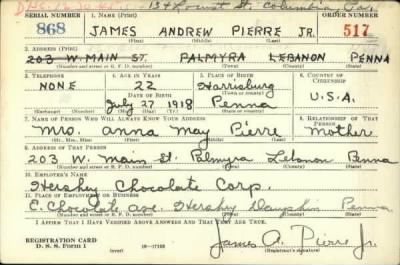 134 Locust St. Columbia, Pa.
SERIAL NUMBER 1. NAME (Print) ORDER NUMBER
868 JAMES ANDREW PIERRE JR. 517
(First) (Middle) (Last)
2. ADDRESS (Print)
203 W. MAIN ST. PALMYRA LEBANON PENNA
(Number and street or R. F. D. number) (Town) (County) (State)
3. TELEPHONE 4. AGE IN YEARS 5. PLACE OF BIRTH 6. COUNTRY OF CITIZENSHIP
NONE 22 Harrisburg
DATE OF BIRTH (Town or county)
July 27 1918 Penna U.S.A.
(Exchange) (Number) (Mo.) (Day) (Yr.) (State or country)
7. NAME OF PERSON WHO WILL ALWAYS KNOW YOUR ADDRESS 8. RELATIONSHIP OF THAT PERSON
Mrs. Anna May Pierre Mother
(Mr., Mrs., Miss) (First) (Middle) (Last)
9. ADDRESS OF THAT PERSON
203 W. Main St. Palmyra Lebanon Penna
(Number and street or R. F. D. number) (Town) (County) (State)
10. EMPLOYER'S NAME
Hershey Chocolate Corp.
11. PLACE OF EMPLOYMENT OR BUSINESS
E. Chocolate Ave. Hershey Dauphin Penna
(Number and street or R. F. D. number) (Town) (County) (State)
I AFFIRM THAT I HAVE VERIFIED ABOVE ANSWERS AND THAT THEY ARE TRUE.
REGISTRATION CARD
D. S. S. Form 1 (over) 16—17105 James A. Pierre Jr.
(Registrant's signature)